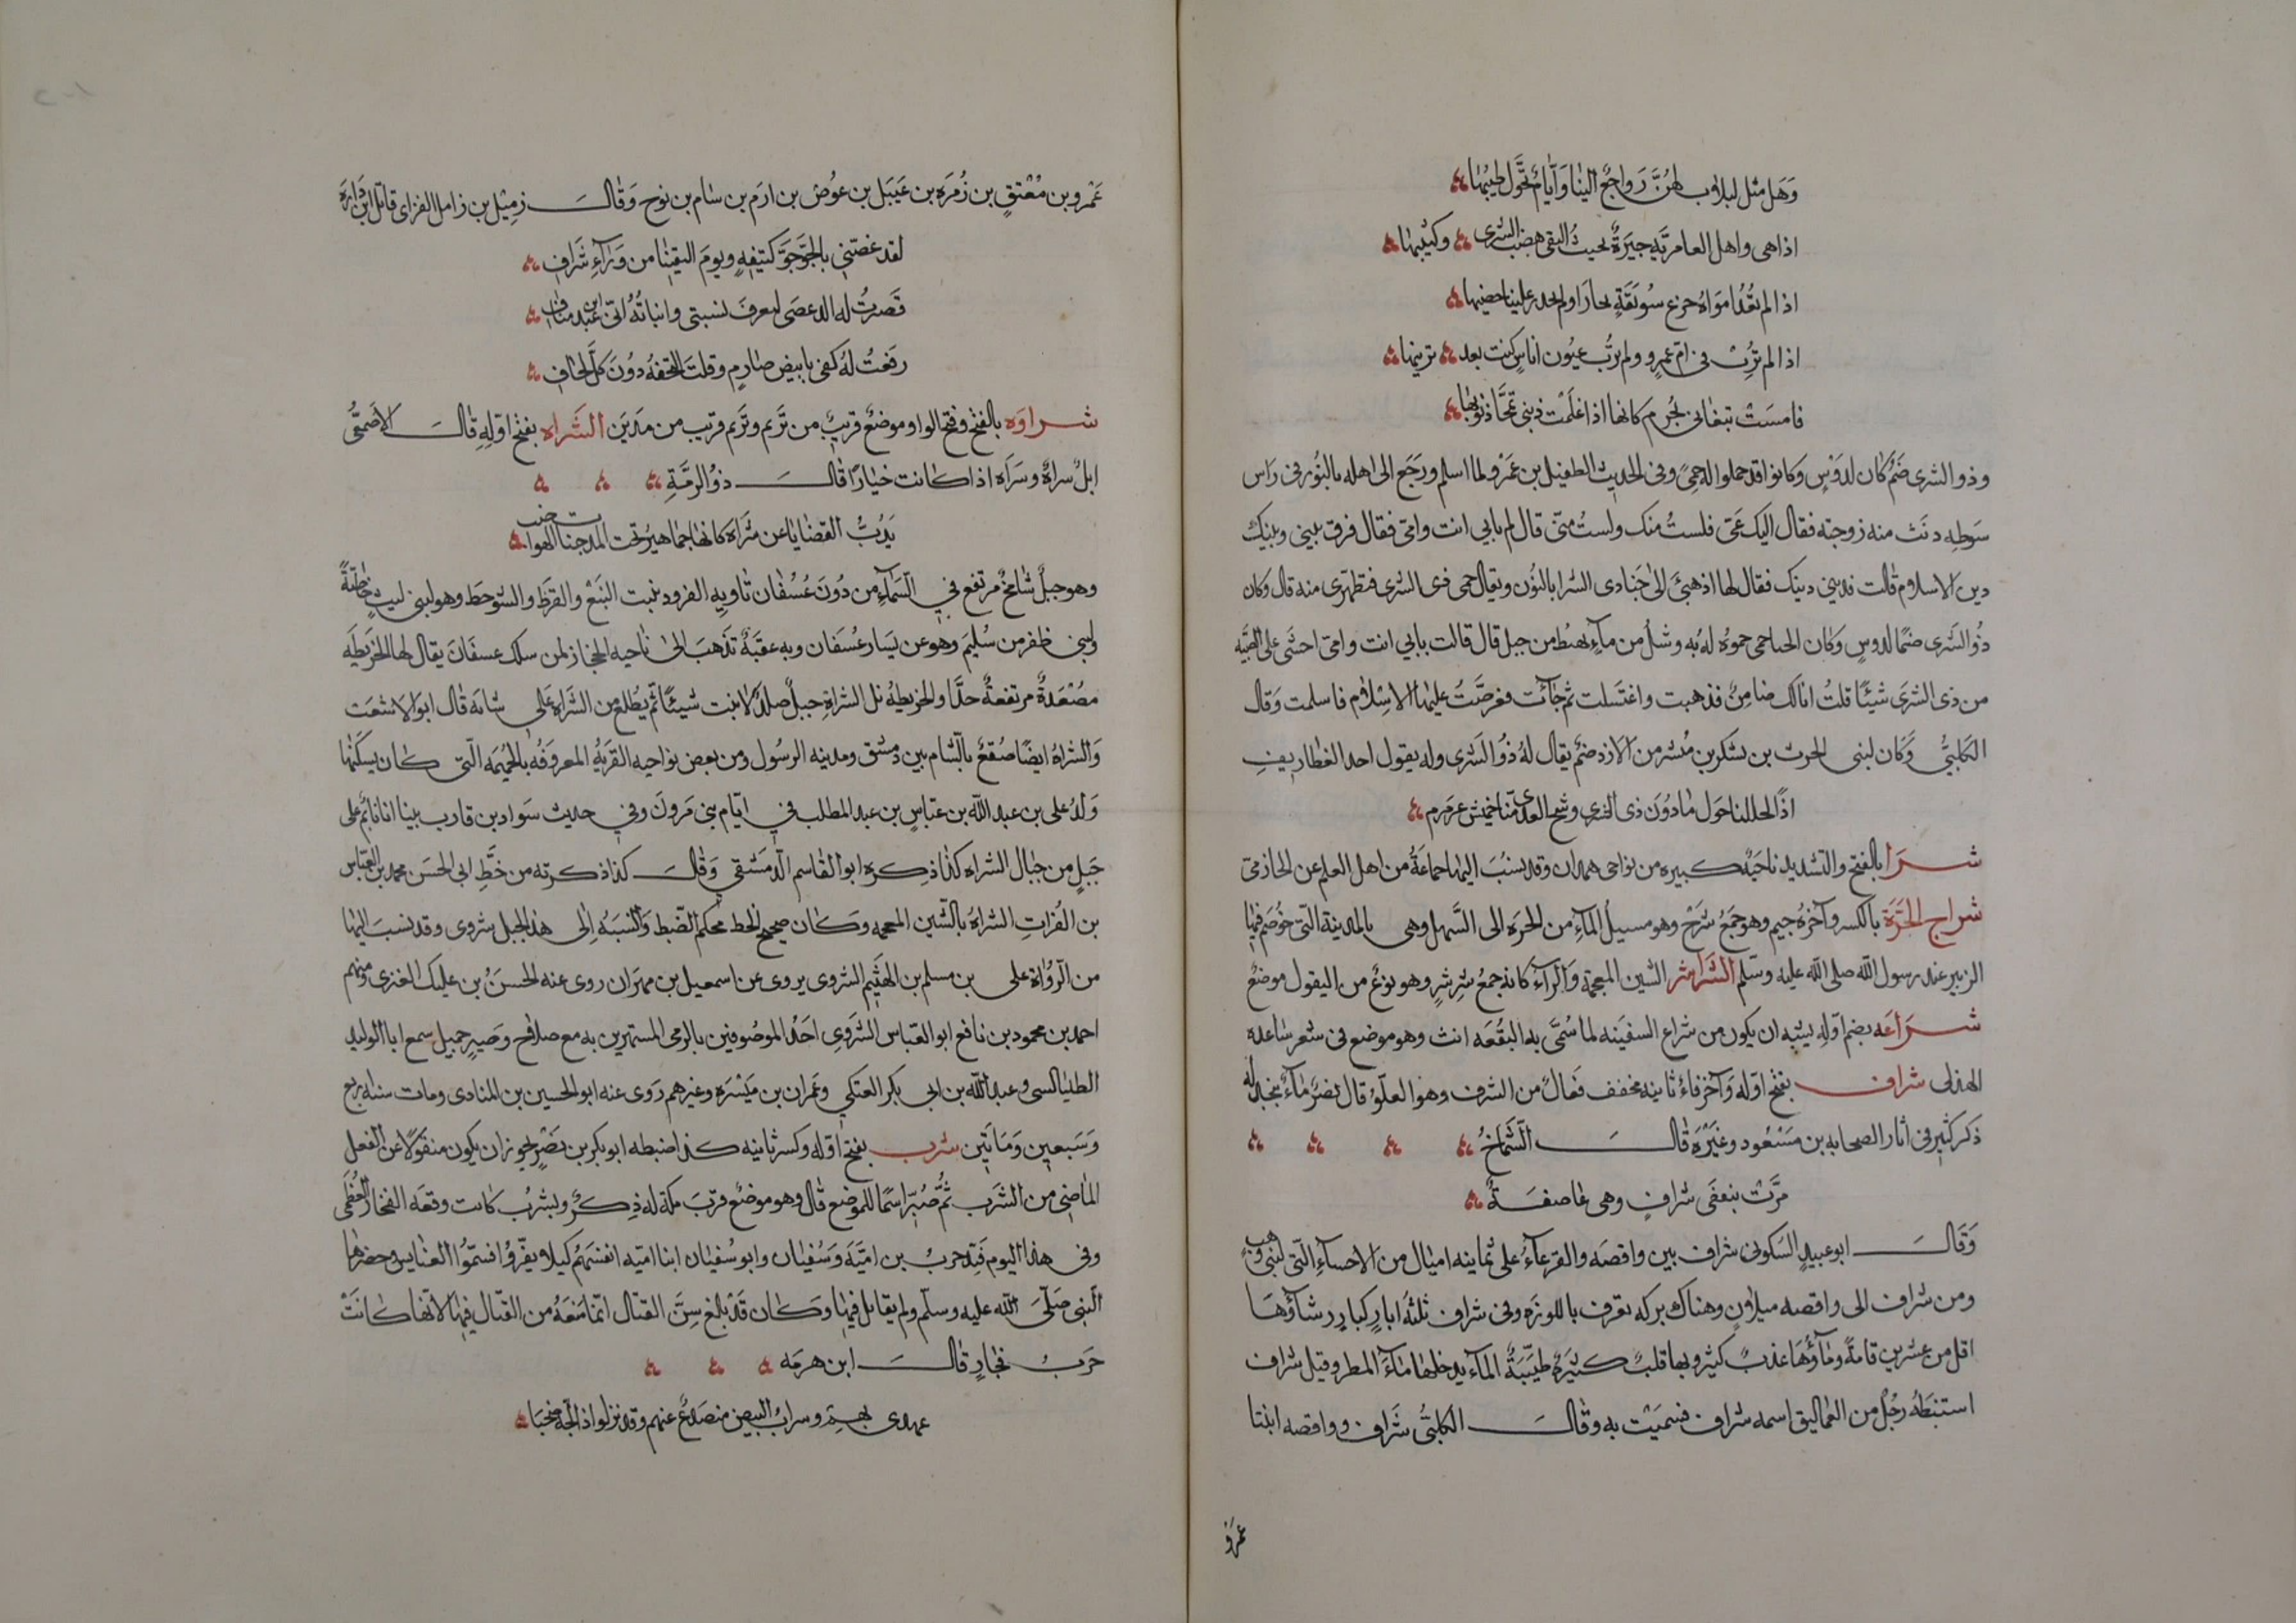 وَهَل مثل ليلات لهُنَّ رَواجعٌ الينا وَأيامٌ تحَّول طيبُها
اذا هى واهل العامرتَيه جيَرةٌ بحيث التقى هضب الشرى وكثيبها
اذا لم
اذا لم تربنى فى امّ عمرٍو ولم ترُب عيُون اناسٍ كنت بعد تريبها
فامسَتْ تبغانى بُجرم كانها اذا علَمتْ ذنبى تمحَّا ذنوبها
وذو الشرى صَنَمٌ كان لدَوْسٍ وكانوا قد حموا له حمًى وفى الحديث الطفيل بن عَمرْو لما اسلم ورَجَع الى اهله بالنُور فى رَاس
سَوطِه دنَتْ منه زوجته فقال اليك عَنّى فلستُ منك ولستُ منّى قال لم بابي انت وامّى فقال فرق بينى وبينك
دين الاسلام قالت فدينى دينك فقال لها اذهبىَ الىٰ حَنَادى الشرا بالنُون ويقال حمى ذى الشرى فتطهرى منه قال وكان
ذُو الشَرى صَنمًا لدوسٍ وَكان الحنا حمى حموُه لهُ به وشلٌ من مآءٍ يهبُط من جبل قال قالت بابي انت وامّى احشَى على الصّبيّه
من ذى الشرَى شيئًا قلتُ انا لك ضامِنٌ فذهبت واغتَسلت ثم جآئت فعرضَتُ عليها الاسلام فاسلمت وَقال
الكلبىُّ وَكان لبنى الحرث بن يشكر بن مُبشر من الازد صَنم يقال لهُ ذوُ الشَرى وله يقول احد الغطاريفِ
اذًا لحللنا حَول مادوُنَ ذى الشرى وشج العدَى منّا خميسٌ عرمرم
شَرَا بالفتح والتشديد ناحيَةٌ كبيره من نواحى همدان وقد يَنسُبَ اليها جماعَةٌ من اهل العلم عن الحازمى
شراج الحَرَّة بالكسر وآخرهُ جيم وهو جَمعُ شَرجْ وهو مسيلُ المآءِ من الحَرة الى السَّهل وهى بالمدينة التّى خُوصَم فيها
الزبير عند رسول اللّه صلى اللّه عليه وسّلم الشَّراشر الشين المعجمة وَالرآءُ كانه جمعُ شِرشرٍ وهو نوعٌ من البقول موضعٌ
شَرَاعَه بضم اوّلهِ يشبه ان يكون من شراع السفينه لما سُمّى به البُقعَه انث وهو موضع فى شعر ساعده
الهذلى شراف بفتح اوّله وَآخره فاءٌ ثانيه مخفف فَعالٌ من الشرف وهو العلوّ قال نصرٌ مآءٌ بنجد له
ذكر كثير فى آثار الصحابه بن مسَعوُد وغيَرُهَ قالَ الشّمَاخُ
مرَّت بنعفَى شرافٍ وهى عاصفَةٌ
وَقَالَ ابو عبيدٍ السَكونى شراف بين واقصَه والقرعآءِ على ثمانيه اميال من الاحسآءِ التّى لبنى وَهب
ومن شراف الى واقصه ميلاوٍن وهناك بركه تعرف باللوزَه وفى شراف ثلثة ابارٍ كبارٍ رشاؤهَا
اقل من عشرين قامةً ومآؤُهَا عذبٌ كثير وبها قلبٌ كثيَرةٌ طيّبَةُ المآءِ يدخلها مآءُ المطر وقيل شراف
استنبَطهُ رجُلٌ من العَماليق اسمه شراف فسميَتْ به وقالَ الكلبىُّ شَراف وواقصه ابنتا
عَمرَو
عَمْرو بن مُعْتقٍ بن زُمرَه بن عَيبَل بن عوُض بن ارَم بن سام بن نوح وَقالَ زمِيْل بن زامل الفزاى قاتل ابن دَارةَ
لقد عضتنى بالجَوّ جَوَّ كتيفهٍ ويومَ التقينا من وَرآءِ شَرافِ
قَصَرتُ له الدعصَى ليعرفَ نسبتى وانبأتُهُ انّى ابن عَبد منَافِ
رفعْتُ لهُ كفى بابيض صارمٍ وقلت التحفهُ دوُنَ كلّ لحَافِ
شراوَه بالفتح وفتح الواو موضعٌ قريبٌ من تَريم وتريَم قريب من مدَين الشَّراه بفتح اوّلِهِ قالَ الاَصمَعىُّ
ابلٌ سراةٌ وسَرَاَه اذا كانت خيارًا قالَ ذوُ الرمَّةِ
يَذُبُّ القضَايا عن شَراة كانها جماهيُر تحت المدجنات الهواضب
وهو جبلٌ شامخٌ مرتفع في السّمآءِ من دُونَ عُسْفان تاويهِ القرود ينبت النَبْع والقرظ والشوَحط وهو لبنى ليثٍ خاصّةً
ولبنى ظفر من سُليمَ وهو عن يَسار عُسَفان وبه عقبَةٌ تذهبَ الىٰ ناحيه الحجاز لمن سلك عسفَانَ يقال لها الخَريَطَه
مصُعَدةٌ مرتفعةٌ جدًّا والخريطه تل الشراةِ جبلٌ صلدٌ لا ينبت شيئًا ثم يَطلع من الشَراةِ عَلى سايَة قال ابو الاشعَث
وَالشراهُ ايضًا صُقعٌ بالشام بين دمشق ومدينه الرسُول ومن بعض نواحيه القريَةُ المعروَفةُ بالحُميَمة الّتى كان يسكنها
وَلدُ على بن عبد اللّه بن عبّاسٍ بن عبد المطلب في ايّام بنى مَروانَ وفي حديث سَواد بن قارب بينا انا نائم على
جَبلٍ من جبال الشراه كذا ذكره ابو القاسم الدّمَشقي وَقالَ كذا ذكرته من خَطِّ ابى الحسَن محمد بن العَبّاس
بن الفُراتِ الشراهُ بالشين المعجمه وَكان صحيحَ الخط محكم الضّبط وَالنسبَةُ اِلى هذا الجبل شروى وقد نسبَ اليها
من الرُّواة على بن مسلم بن الهيَثم الشروى يروى عن اسمعيل بن مهرَان روى عنه الحسَنُ بن عليك العنزى ومنهم
احمد بن محموُد بن نافع ابو العَبّاس الشرَوِى احَدُ الموصُوفين بالرمى المستهرين به مع صلاح وَصَبرٍ جميل سمع ابا الوليد
الطيالسى وعبد اللّه بن ابى بكر العتكي وعَمران بن مَيسْرَة وغيرهم رَوى عنه ابو الحسين بن المنادى ومات سنه اربع
وَسَبعين وَمَاتَين شرب بفتح اوّله وكسر ثانيه كذا ضبطه ابو بكر بن نَصْرٍ يجوز ان يكون منقوَلاً عن الفعل
الماضى من الشرَب ثمُّ صُيرّ اسمًا للموضع قال وهو موضعٌ قربَ مكة له ذِكرٌ وبشربُ كانت وقعَه الفخار العُظمَى
وفى هذا اليوم قيّد حربُ بن امَيَّةَ وَسُفيَان وابو سُفيان ابنا اميّه انفسَهُم كيلا يفّروُا فسمّوُا العنابس وحضرها
النّبى صَلّىَ اللّه عليه وسلّم ولم يقاتل فيها وَكان قَدْ بلغ سِنَّ القتال انّما مَنعَهُ من القتال فيها لانّها كانَتْ
حرَبُ فجارٍ قالَ ابن هرمَه
عهدى بهم وسرابُ البيض منصَدِعٌ عنهم وقد نزلوا ذا لجّهِ صَخبَا